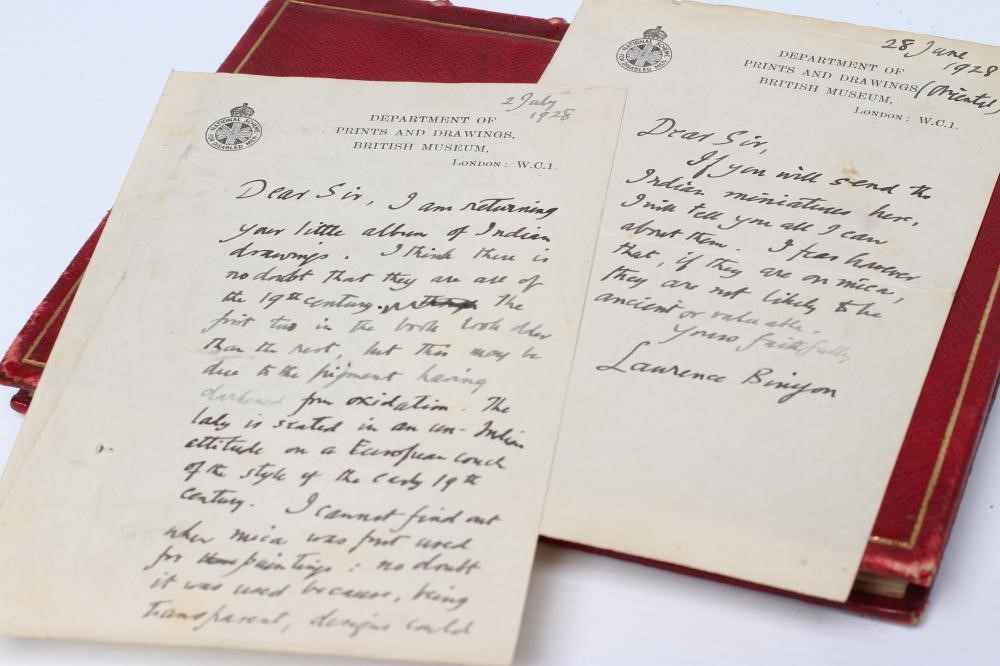 2 July
1928
NATIONAL SCHEME
FOR DISABLED MEN
DEPARTMENT OF
PRINTS AND DRAWINGS,
BRITISH MUSEUM,
LONDON: W.C.1.
Dear Sir, I am returning
your little album of Indian
drawings. I think there is
no doubt that they are all of
the 19th century. The
first two in the book look older
than the rest, but this may be
due to the pigment having
darkened from oxidation. The
lady is seated in an un-Indian
attitude on a European couch
of the style of the early 19th
century. I cannot find out
when mica was first used
for paintings: no doubt
it was used because, being
transparent, designs could
28 June
1928
NATIONAL SCHEME
FOR DISABLED MEN
DEPARTMENT OF
PRINTS AND DRAWINGS (Oriental)
BRITISH MUSEUM,
LONDON: W.C.1.
Dear Sir,
If you will send the
Indian miniatures here,
I will tell you all I can
about them. I fear however
that, if they are on mica,
they are not likely to be
ancient or valuable.
Yours faithfully
Laurence Binyon